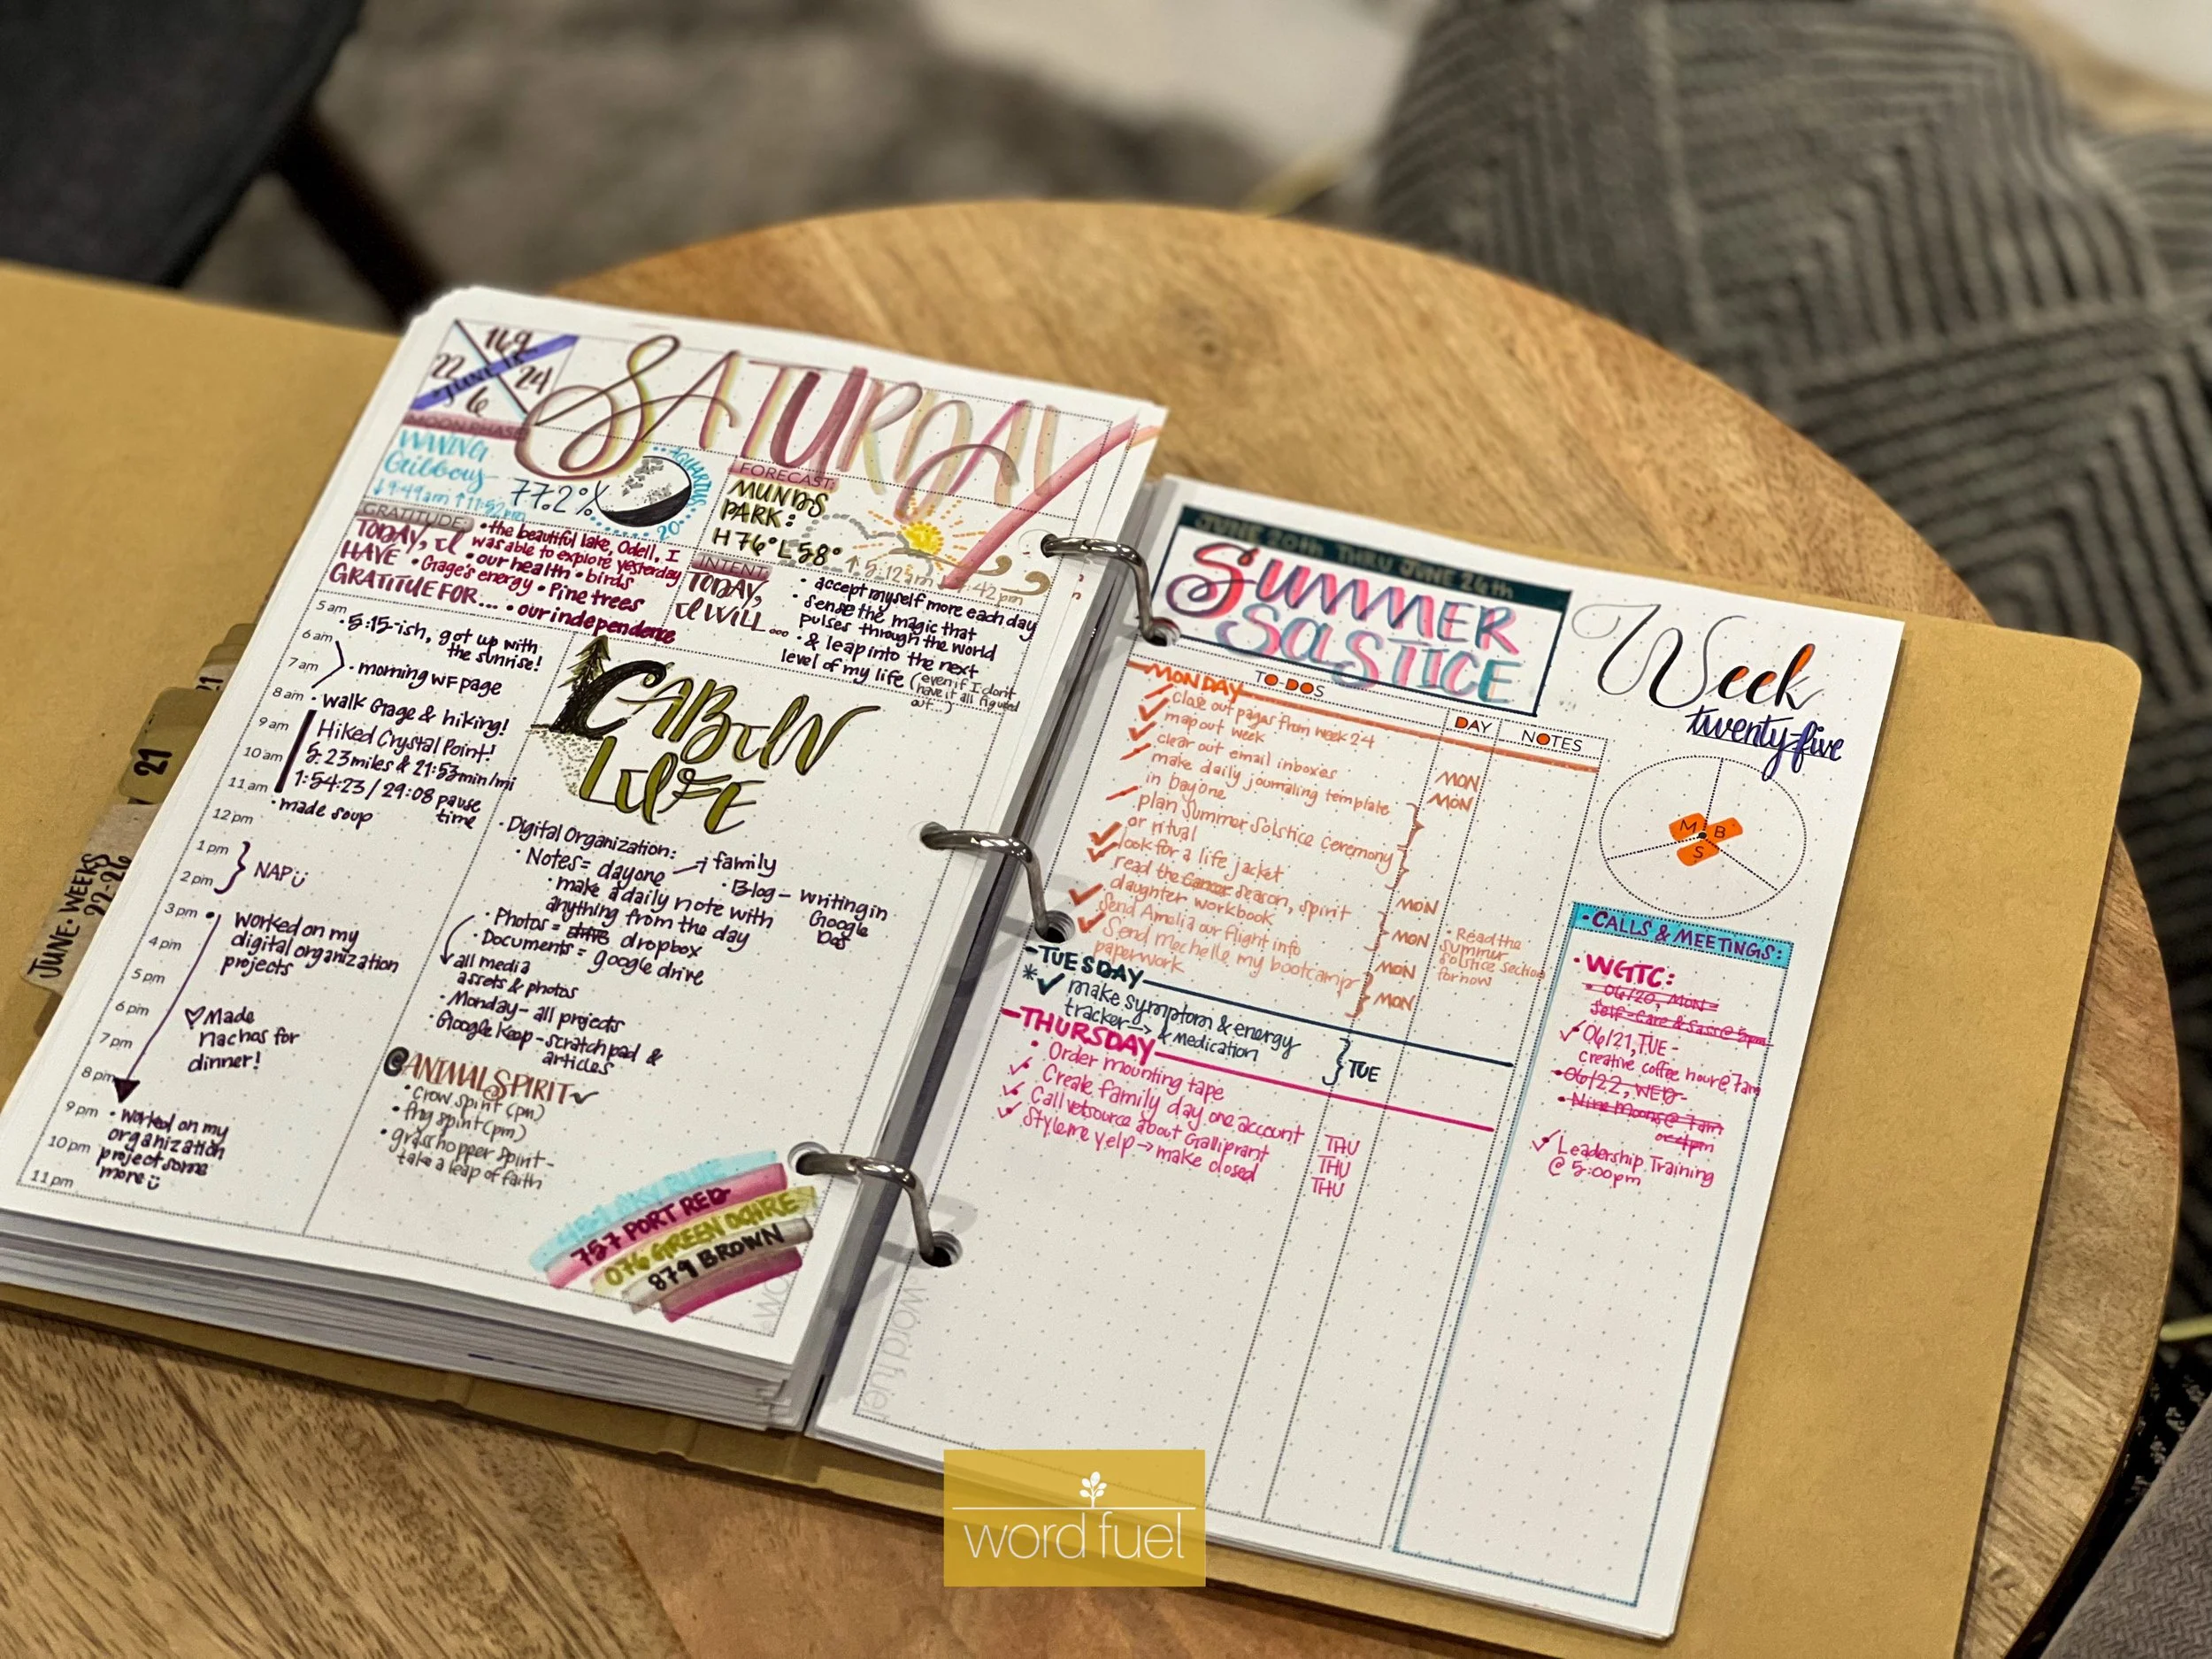 169
22
24
JUNE 18
6
SATURDAY
MOON PHASE:
WANING
Gibbous
↓9:49am ↑11:52pm
77.2%
AQUARIUS
20°
FORECAST:
MUNDS
PARK:
H 76° L 58°
↑5:12am
:42pm
GRATITUDE:
TODAY, I
HAVE
GRATITUE FOR...
• the beautiful lake, Odell, I
was able to explore yesterday
• our health • birds
• Gage's energy • Pine trees
• our independence
INTENT:
TODAY,
I WILL...
• accept myself more each day
• sense the magic that
pulses through the world
• & leap into the next
level of my life (even if I don't
have it all figured
out...)
5 am
6 am
7 am
8 am
9 am
10 am
11 am
12 pm
1 pm
2 pm
3 pm
4 pm
5 pm
6 pm
7 pm
8 pm
9 pm
10 pm
11 pm
• 5:15-ish, got up with
the sunrise!
• morning WF page
• walk Gage & hiking!
Hiked Crystal Point!
5.23 miles & 21:53 min/mi
1:54:23 / 29:08 pause
time
• made soup
NAP
worked on my
digital organization
projects
♡ Made
nachos for
dinner!
• worked on my
organization
project some
more
CABIN
LIFE
• Digital Organization:
• Notes = dayone → family
• make a daily note with
anything from the day
• Blog - writing in
Google
Doc
• Photos = dropbox
• Documents = google drive
all media
assets & photos
• Monday - all projects
• Google Keep - scratch pad &
articles
@ANIMALSPIRIT
• crow spirit (pm)
• frog spirit (pm)
• grasshopper spirit -
take a leap of faith
757 PORT RED
076 GREEN OCHRE
879 BROWN
JUNE • WEEKS
22-26
21
21
JUNE 20th THRU JUNE 26th
SUMMER
SOLSTICE
Week
twenty-five
TO-DOS
DAY
NOTES
MONDAY
close out pages from week 24
map out week
clear out email inboxes
make daily journaling template
in Day One
plan Summer Solstice Ceremony
or ritual
look for a life jacket
read the cancer season, spirit
daughter workbook
Send Amelia our flight info
Send Mechelle my bootcamp
paperwork
MON
MON
MON
MON
MON
MON
• Read the
summer
solstice section
for now
TUESDAY
* make symptom & energy
tracker → & medication
TUE
THURSDAY
• Order mounting tape
Create family day one account
Call vetsource about Galliprant
Styleme yelp → make closed
THU
THU
THU
M B
S
• CALLS & MEETINGS:
• WGTC:
• 06/20, MON -
Self-Care & Sass @ 5pm
06/21, TUE -
creative coffee hour @ 7am
• 06/22, WED -
• Nine Moons @ 7am
or 4pm
Leadership Training
@ 5:00pm
word fuel
word fuel